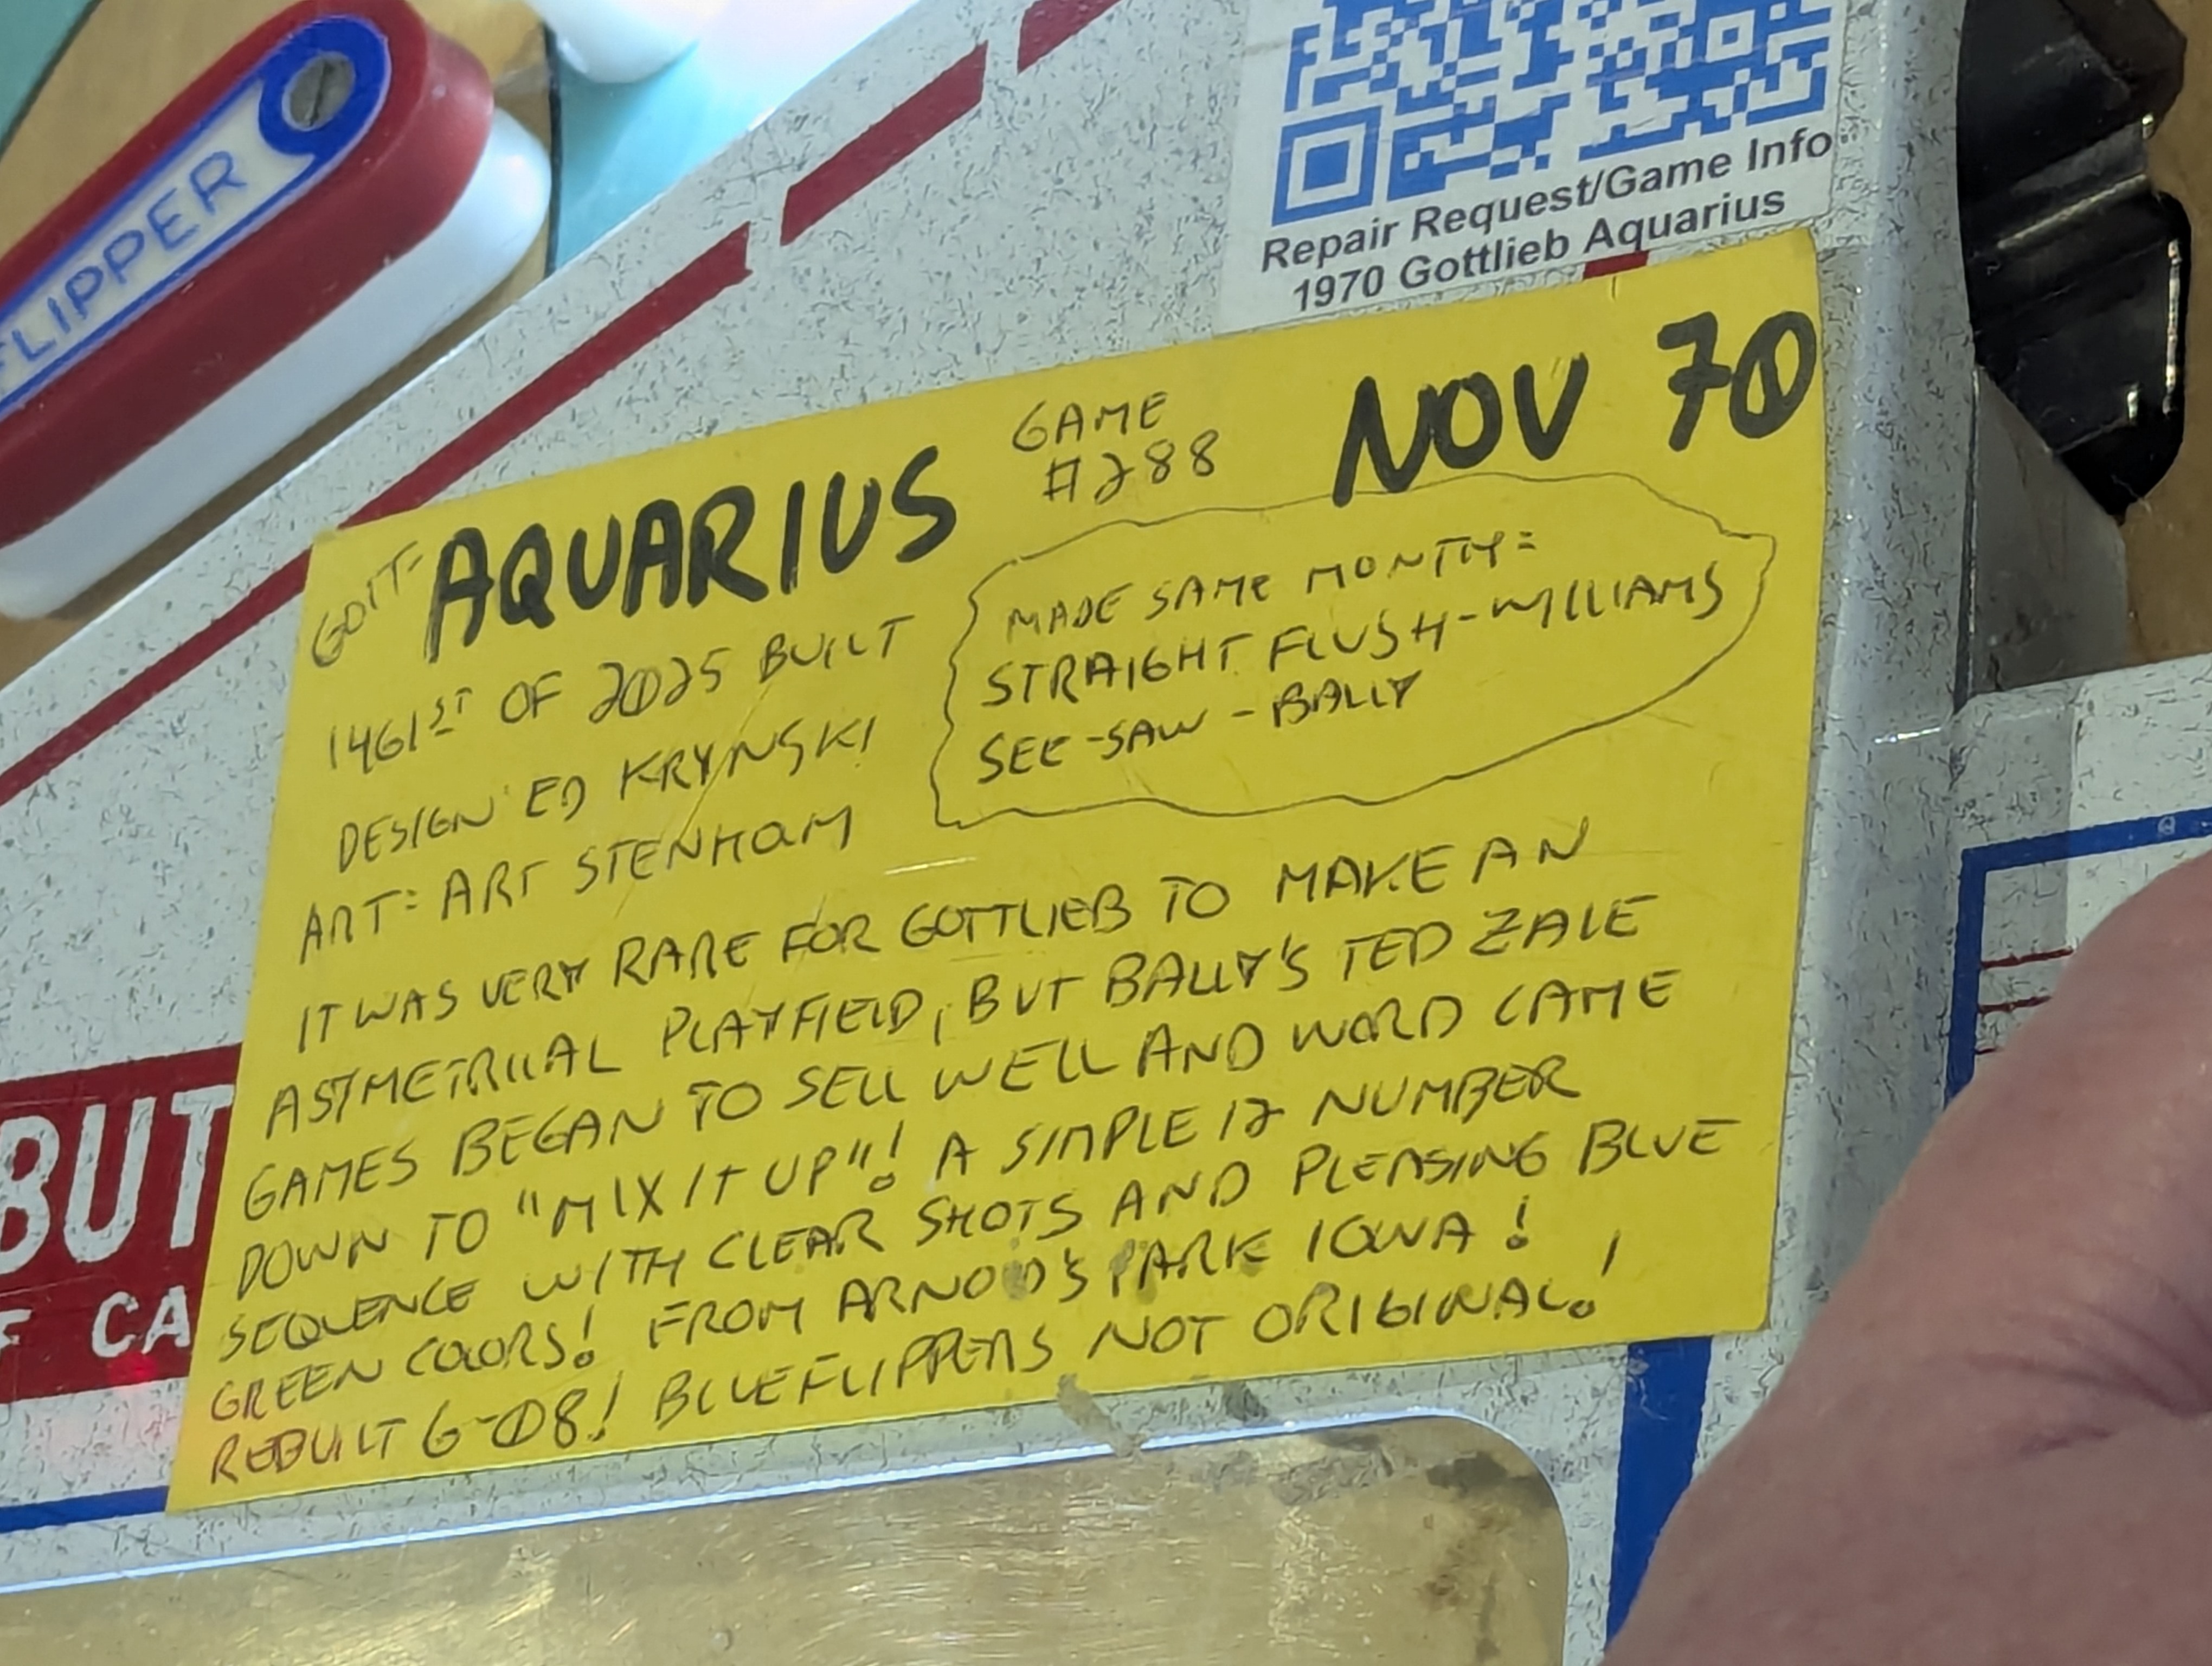 FLIPPER
Repair Request/Game Info
1970 Gottlieb Aquarius
GOTT- AQUARIUS GAME #288 NOV 70
1461ST OF 2025 BUILT
DESIGN ED KRYNSKI
ART= ART STENHOLM
MADE SAME MONTH=
STRAIGHT FLUSH-WILLIAMS
SEE-SAW-BALLY
IT WAS VERY RARE FOR GOTTLIEB TO MAKE AN
ASYMETRICAL PLAYFIELD, BUT BALLY'S TED ZALE
GAMES BEGAN TO SELL WELL AND WORD CAME
DOWN TO "MIX IT UP"! A SIMPLE 12 NUMBER
SEQUENCE WITH CLEAR SHOTS AND PLEASING BLUE
GREEN COLORS! FROM ARNOLD'S PARK IOWA!
REBUILT 6-08! BLUE FLIPPERS NOT ORIGINAL!
BUT
CA